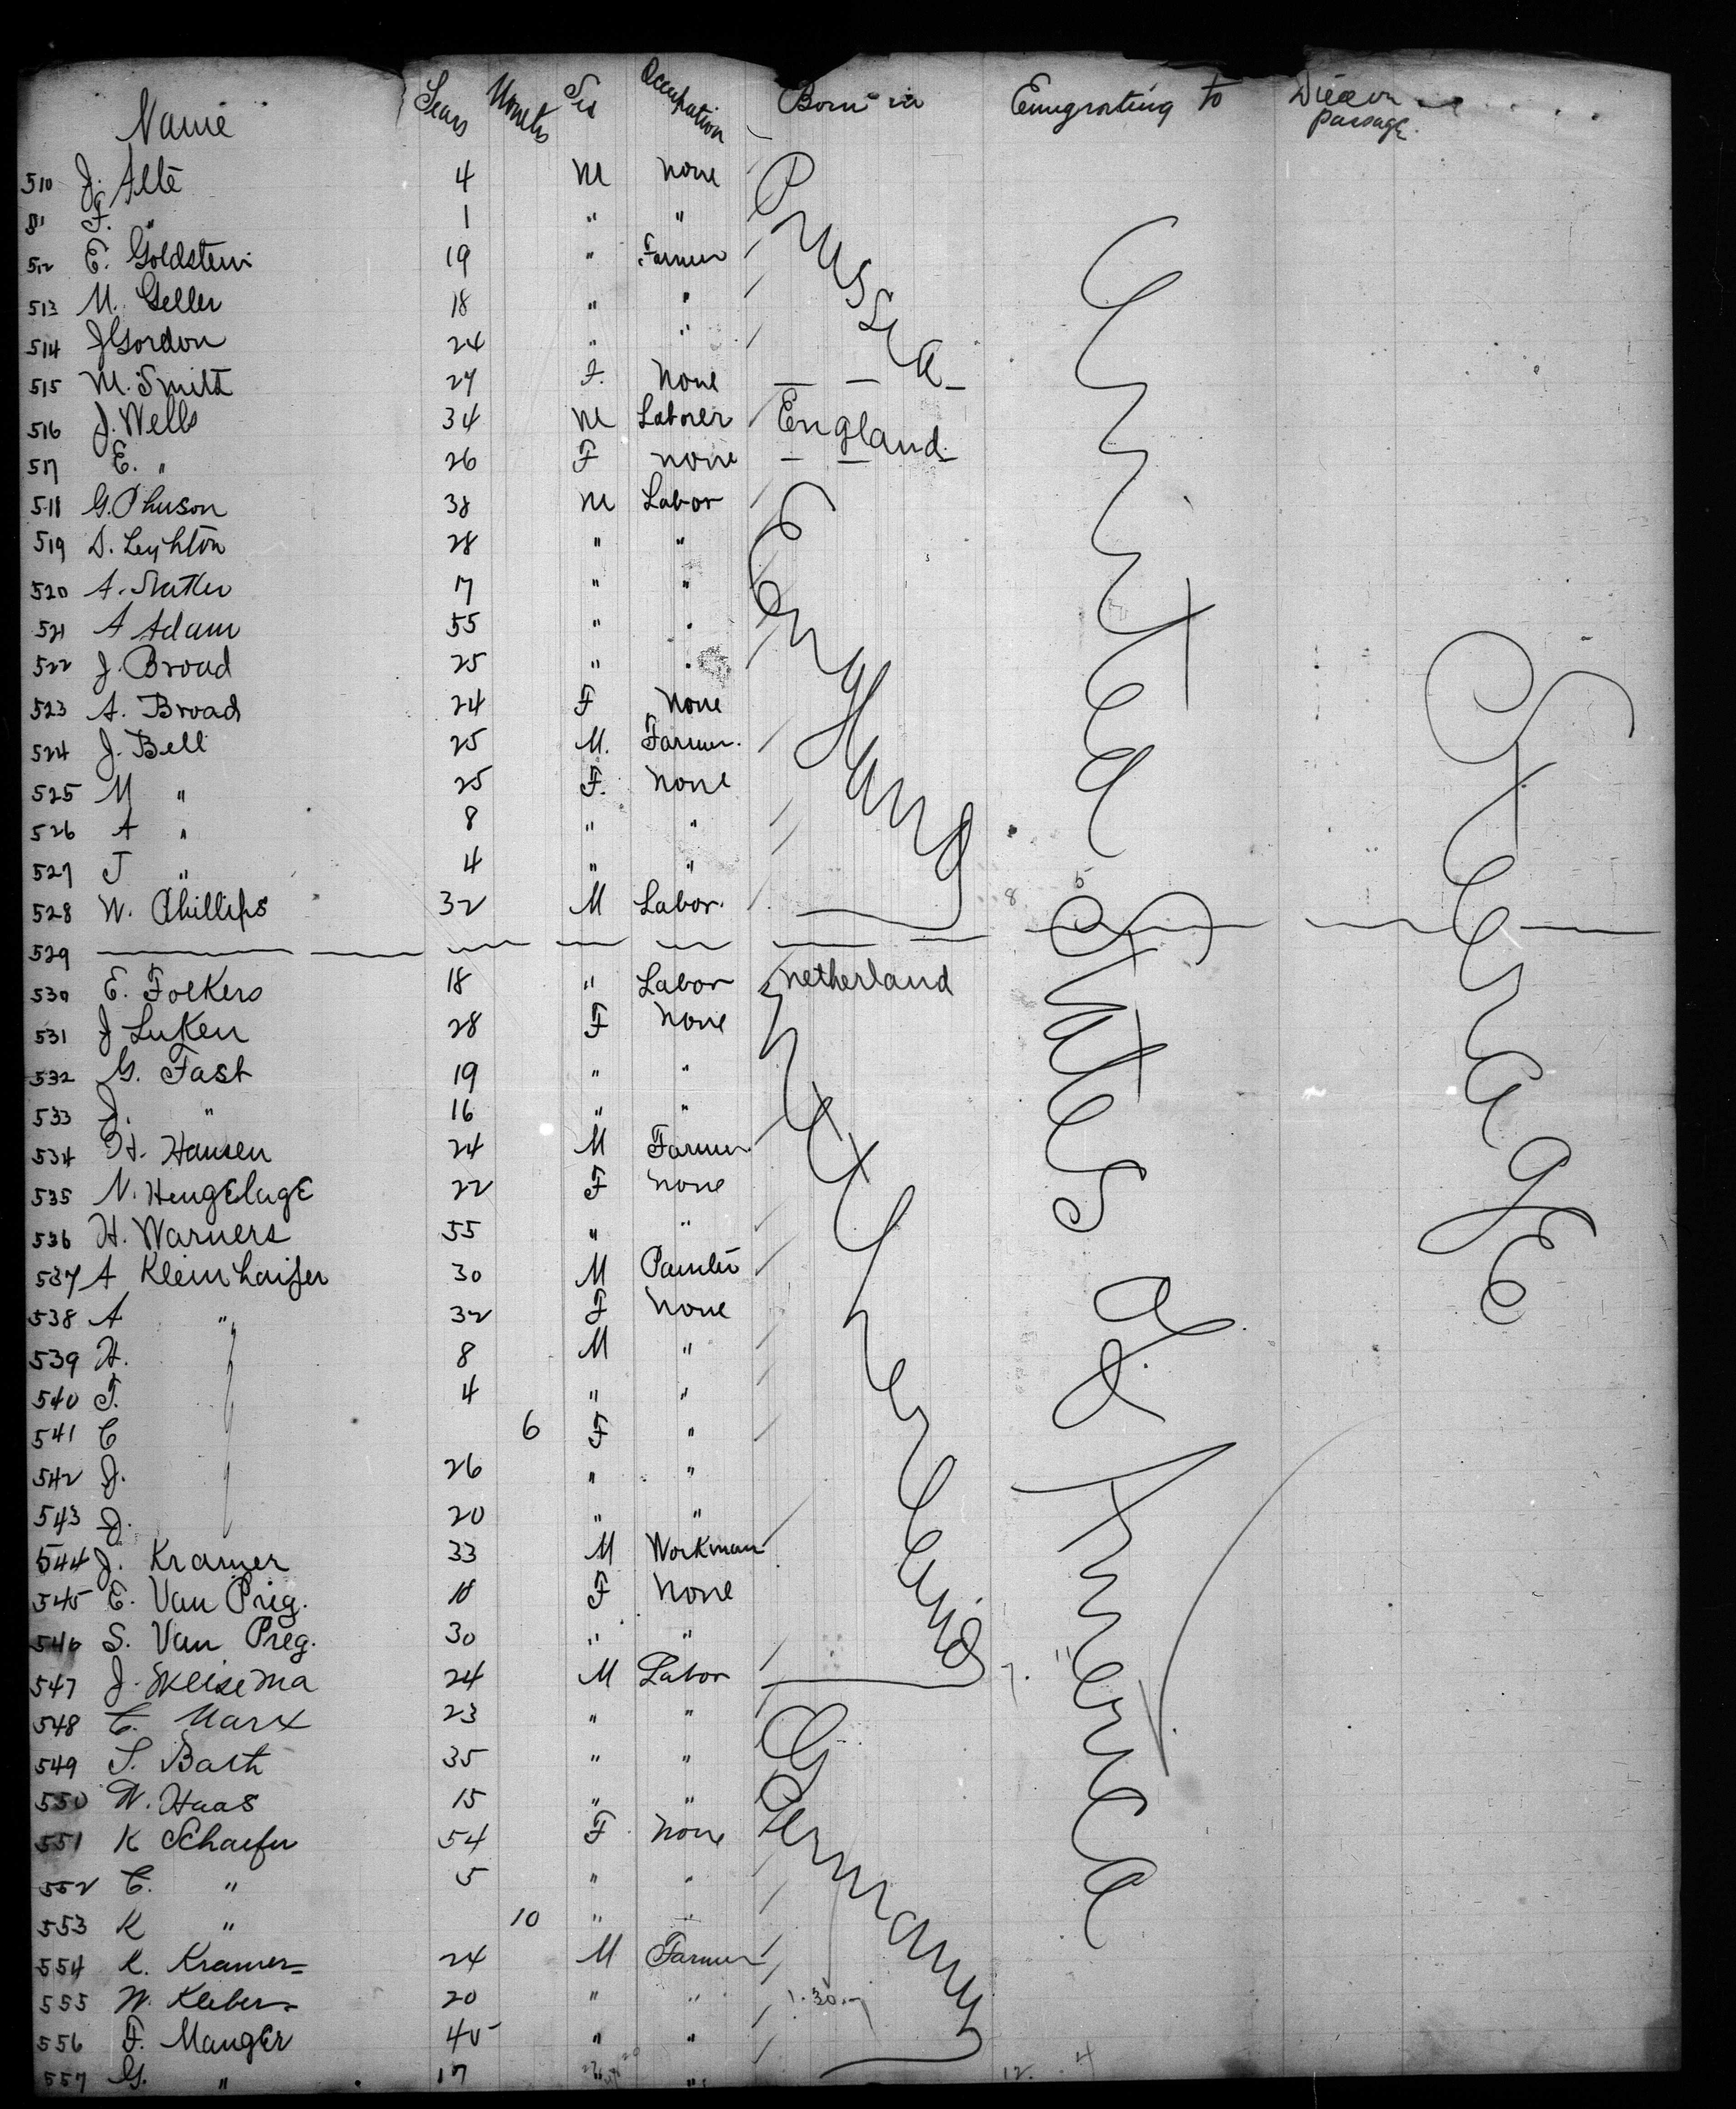 Name Years Months Sex Occupation Born in Emigrating to Died on passage.
510 J. Alte 4 M None Prussia
511 F. " 1 " "
512 E. Goldstein 19 " Farmer
513 M. Geller 18 " "
514 J Gordon 24 " "
515 M. Smith 27 F. None
516 J. Wells 34 M Laborer England
517 E. " 26 F none
518 G. 38 M Labor England
519 S. Leyhton 28 " "
520 A. 17 " "
521 A Adam 55 " "
522 J. Broad 25 " "
523 A. Broad 24 F None
524 J. Bell 25 M. Farmer.
525 M " 25 F. None
526 A " 8 " "
527 J " 4 " "
528 W. Phillips 32 M Labor.
529
530 E. Folkers 18 " Labor Netherland
531 J Luken 28 F None Netherland
532 G. Fast 19 " "
533 J. " 16 " "
534 H. Hansen 24 M Farmer
535 N. HengElagE 22 F none
536 H. Warners 55 " "
537 A Kleinhaifer 30 M Painter
538 A " 32 F None
539 H. 8 M "
540 T. 4 " "
541 C 6 F "
542 J. 26 " "
543 J. 20 " "
544 J. Kramer 33 M Workman
545 E. Van Prig. 18 F None
546 S. Van Preg. 30 " "
547 J. 24 M Labor
548 C. Marx 23 " " Germany
549 S. Barth 35 " "
550 W. Haas 15 " "
551 K Schaefer 54 F. None
552 C. " 5 " "
553 K " 10 " "
554 K. Kramer 24 M Farmer
555 W. Kleber 20 " "
556 F. MangEr 45 " "
557 G. " 17 " "
United States of America
SteeragE